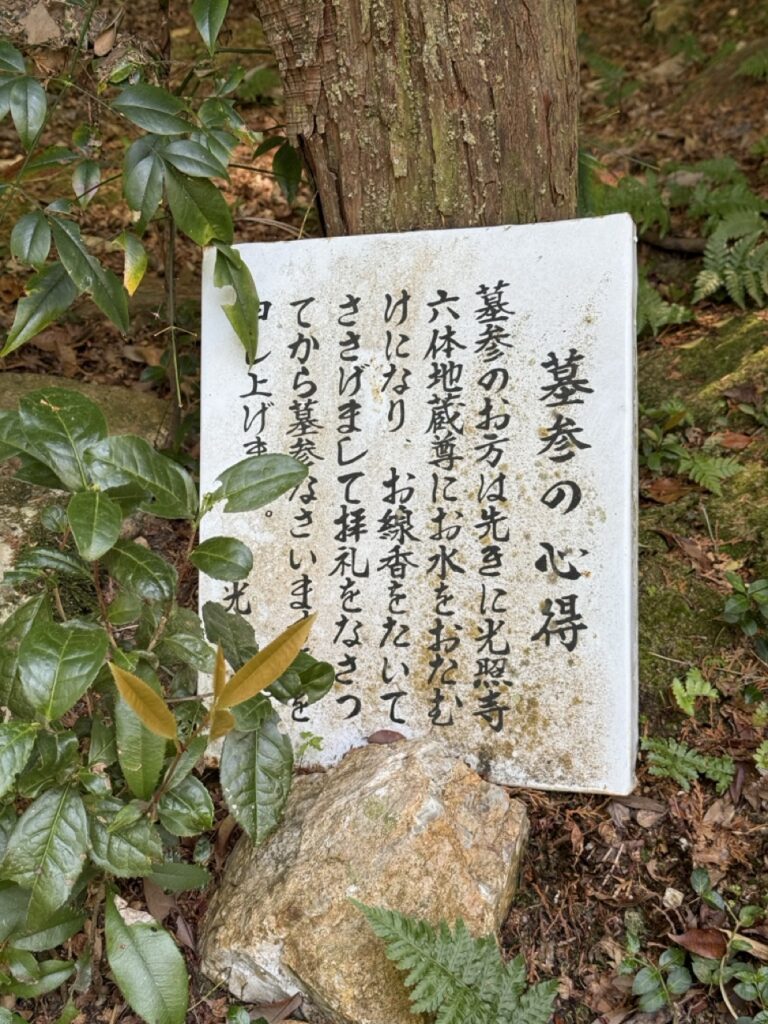 墓参の心得
墓参のお方は先きに光照寺
六体地蔵尊にお水をおたむ
けになり、お線香をたいて
ささげまして拝礼をなさつ
てから墓参なさいま を
し上げま 。
光